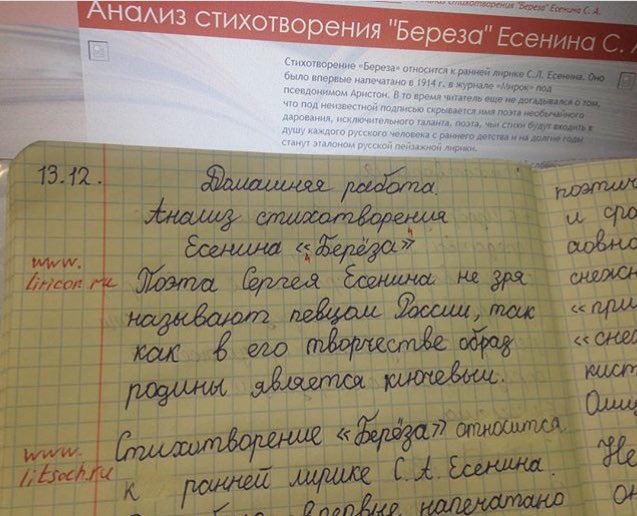 Анализ стихотворения "Береза" Есенина С.
Стихотворение «Береза» относится к ранней лирике С.Л. Есенина. Оно
было впервые напечатано в 1914 г. в журнале «Мирок» под
псевдонимом Аристон. В то время читатель еще не догадывался о том,
что под неизвестной подписью скрывается имя поэта необычайного
дарования, исключительного таланта, поэта, чьи стихи будут входить в
душу каждого русского человека с раннего детства и на долгие годы
станут эталоном русской пейзажной лирики.
13.12.
Домашняя работа.
Анализ стихотворения
Есенина «Берёза»
www.
liricon.ru
Поэта Сергея Есенина не зря
называют певцом России, так
как в его творчестве образ
родины является ключевым.
www.
litsoch.ru
Стихитворение «Берёза» относится
к ранней лирике С.А. Есенина.
впервые напечатано
поэтич
и сра
снежн
«при
«снег
кист
Не
он